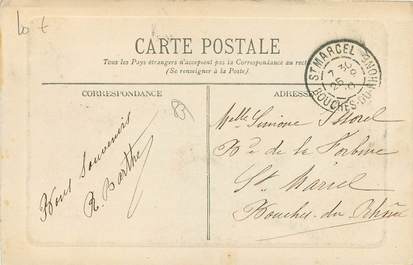 CARTE POSTALE
Tous les Pays étrangers n'acceptent pas la Correspondance au recto
(Se renseigner à la Poste)
ST MARCEL
BOUCHES-DU-RHONE
CORRESPONDANCE
ADRESSE
Bons Souvenirs
R. Barthe
Melle Simone Morel
Bd de la Forbine
St Marcel
Bouches du Rhône